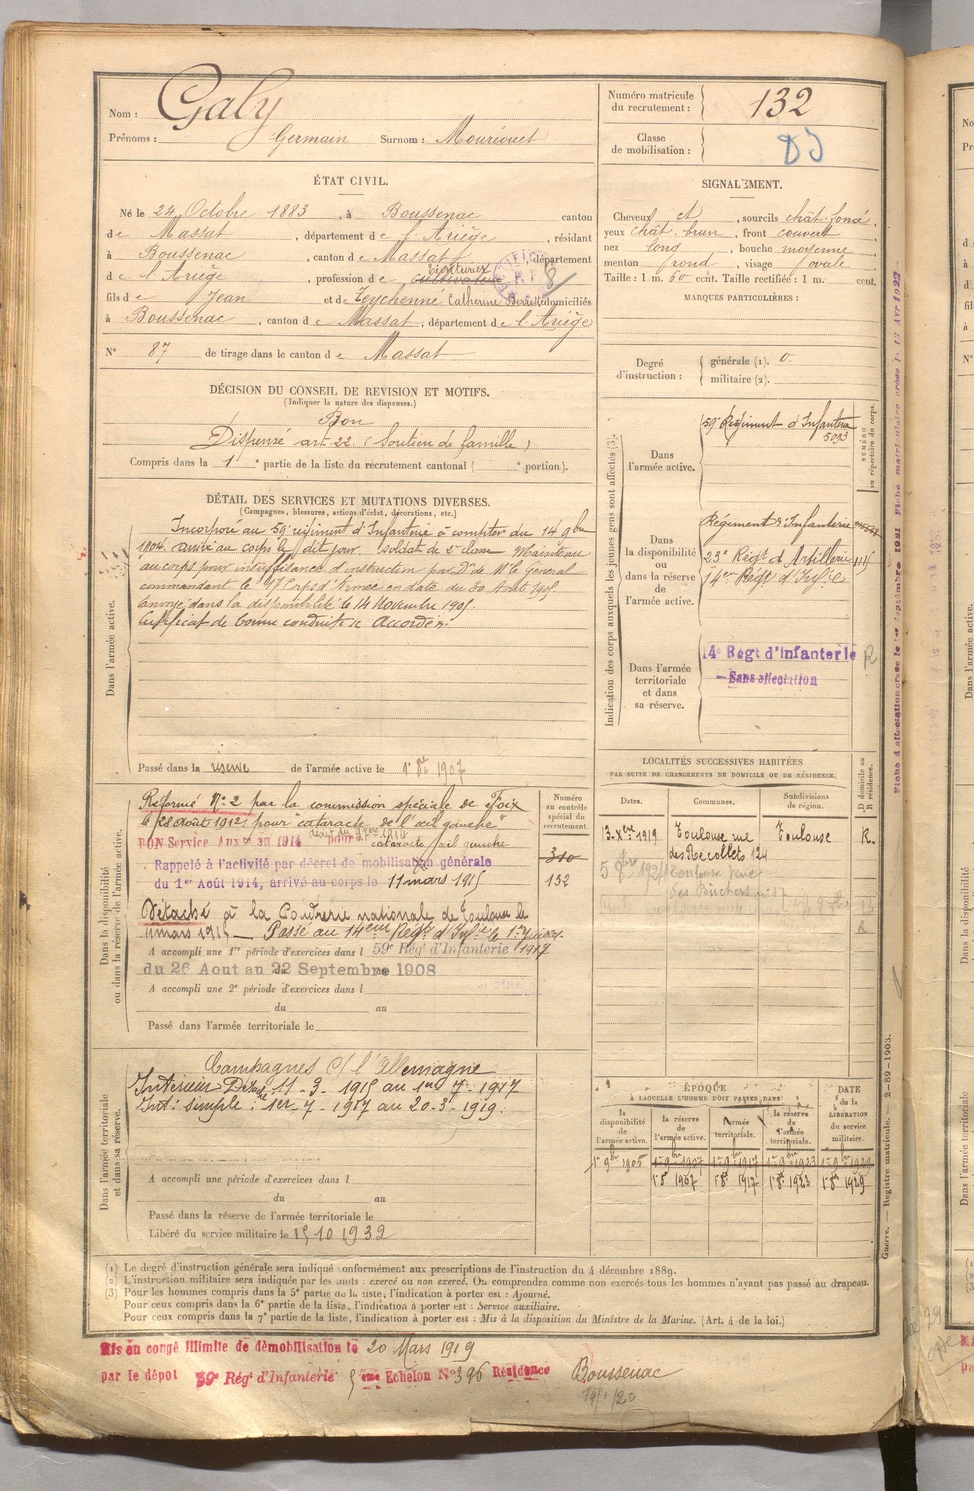 Nom : Galy
Prénoms : Germain Surnom : Mouréouet
Numéro matricule du recrutement : 132
Classe de mobilisation : 03
ÉTAT CIVIL.
Né le 24 Octobre 1883, à Boussenac canton
de Massat, département de l'Ariège, résidant
à Boussenac, canton de Massat, département
de l'Ariège, profession de cultivateur
fils de Jean et de Teychenné Catherine domiciliés
à Boussenac, canton de Massat, département de l'Ariège
N° 87 de tirage dans le canton de Massat
SIGNALEMENT.
Cheveux et, sourcils chât. foncé,
yeux chât. brun, front couvert
nez long, bouche moyenne
menton rond, visage ovale
Taille : 1 m. 60 cent. Taille rectifiée : 1 m. cent.
MARQUES PARTICULIÈRES :
Degré d'instruction : générale (1). 0
militaire (2).
DÉCISION DU CONSEIL DE REVISION ET MOTIFS.
(Indiquer la nature des dispenses.)
Bon
Dispensé art. 22. (Soutien de famille)
Compris dans la 1e partie de la liste du recrutement cantonal ( e portion).
DÉTAIL DES SERVICES ET MUTATIONS DIVERSES.
(Campagnes, blessures, actions d'éclat, décorations, etc.)
Dans l'armée active.
Incorporé au 59e régiment d'Infanterie à compter du 14 9bre
1904. arrivé au corps le dit jour. soldat de 2e classe. Maintenu
au corps pour insuffisance d'instruction par Don de Mr le Général
commandant le 17e Corps d'Armée en date du 30 Août 1905.
Envoyé dans la disponibilité le 14 Novembre 1905.
Certificat de bonne conduite « Accordé ».
Passé dans la réserve de l'armée active le 1er 8bre 1907
Indication des corps auxquels les jeunes gens sont affectés (3).
NUMÉRO au répertoire du corps.
Dans l'armée active.
59e Régiment d'Infanterie
5093
Dans la disponibilité ou dans la réserve de l'armée active.
Régiment d'Infanterie
23e Régt d'Artillerie
14eme Régt d'Infie
Dans l'armée territoriale et dans sa réserve.
14e Régt d'infanterie R
Sans affectation
Dans la disponibilité ou dans la réserve de l'armée active.
Réformé N° 2 par la commission spéciale de Foix
le 28 Août 1912 pour "cataracte de l'œil gauche"
BON Service Auxre en 1914 pour cataracte œil gauche
Rappelé à l'activité par décret de mobilisation générale
du 1er Août 1914, arrivé au corps le 11 mars 1915
Détaché à la Poudrerie nationale de Toulouse le
11 mars 1915 Passé au 14eme Régt d'Infie le 1er Juillet 1917
A accompli une 1re période d'exercices dans l 59e Régt d'Infanterie
du 26 Aout au 22 Septembre 1908
A accompli une 2e période d'exercices dans l
du au
Passé dans l'armée territoriale le
Numéro au contrôle spécial du recrutement
310
132
LOCALITÉS SUCCESSIVES HABITÉES
PAR SUITE DE CHANGEMENTS DE DOMICILE OU DE RÉSIDENCE.
D domicile ou R résidence.
Dates. Communes. Subdivisions de région.
13 Xbre 1919 Toulouse rue des Récollets 124 Toulouse R.
Toulouse rue
Dans l'armée territoriale et dans sa réserve.
Campagnes c/ l'Allemagne
Intérieur 11-3-1915 au 1er 7-1917
Int. simple : 1er 7-1917 au 20-3-1919.
A accompli une période d'exercices dans l
du au
Passé dans la réserve de l'armée territoriale le
Libéré du service militaire le 15 10 1932
ÉPOQUE À LAQUELLE L'HOMME DOIT PASSER DANS
la disponibilité de l'armée active. la réserve de l'armée active. l'armée territoriale. la réserve de l'armée territoriale. DATE de la LIBÉRATION du service militaire.
1er 9bre 1905 1er 9bre 1907 1er 9bre 1917 1er 9bre 1923 1er 9bre 1929
1er 8bre 1907 1er 8bre 1917 1er 8bre 1923 1er 8bre 1929
(1) Le degré d'instruction générale sera indiqué conformément aux prescriptions de l'instruction du 4 décembre 1889.
(2) L'instruction militaire sera indiquée par les mots : exercé ou non exercé. On comprendra comme non exercés tous les hommes n'ayant pas passé au drapeau.
(3) Pour les hommes compris dans la 5e partie de la liste, l'indication à porter est : Ajourné.
Pour ceux compris dans la 6e partie de la liste, l'indication à porter est : Service auxiliaire.
Pour ceux compris dans la 7e partie de la liste, l'indication à porter est : Mis à la disposition du Ministre de la Marine. (Art. 4 de la loi.)
Guerre. — Registre matricule. — 2-89-1903.
Mis en congé illimité de démobilisation le 20 Mars 1919
par le dépôt 59e Régt d'Infanterie 5eme Echelon N° 396 Résidence Boussenac